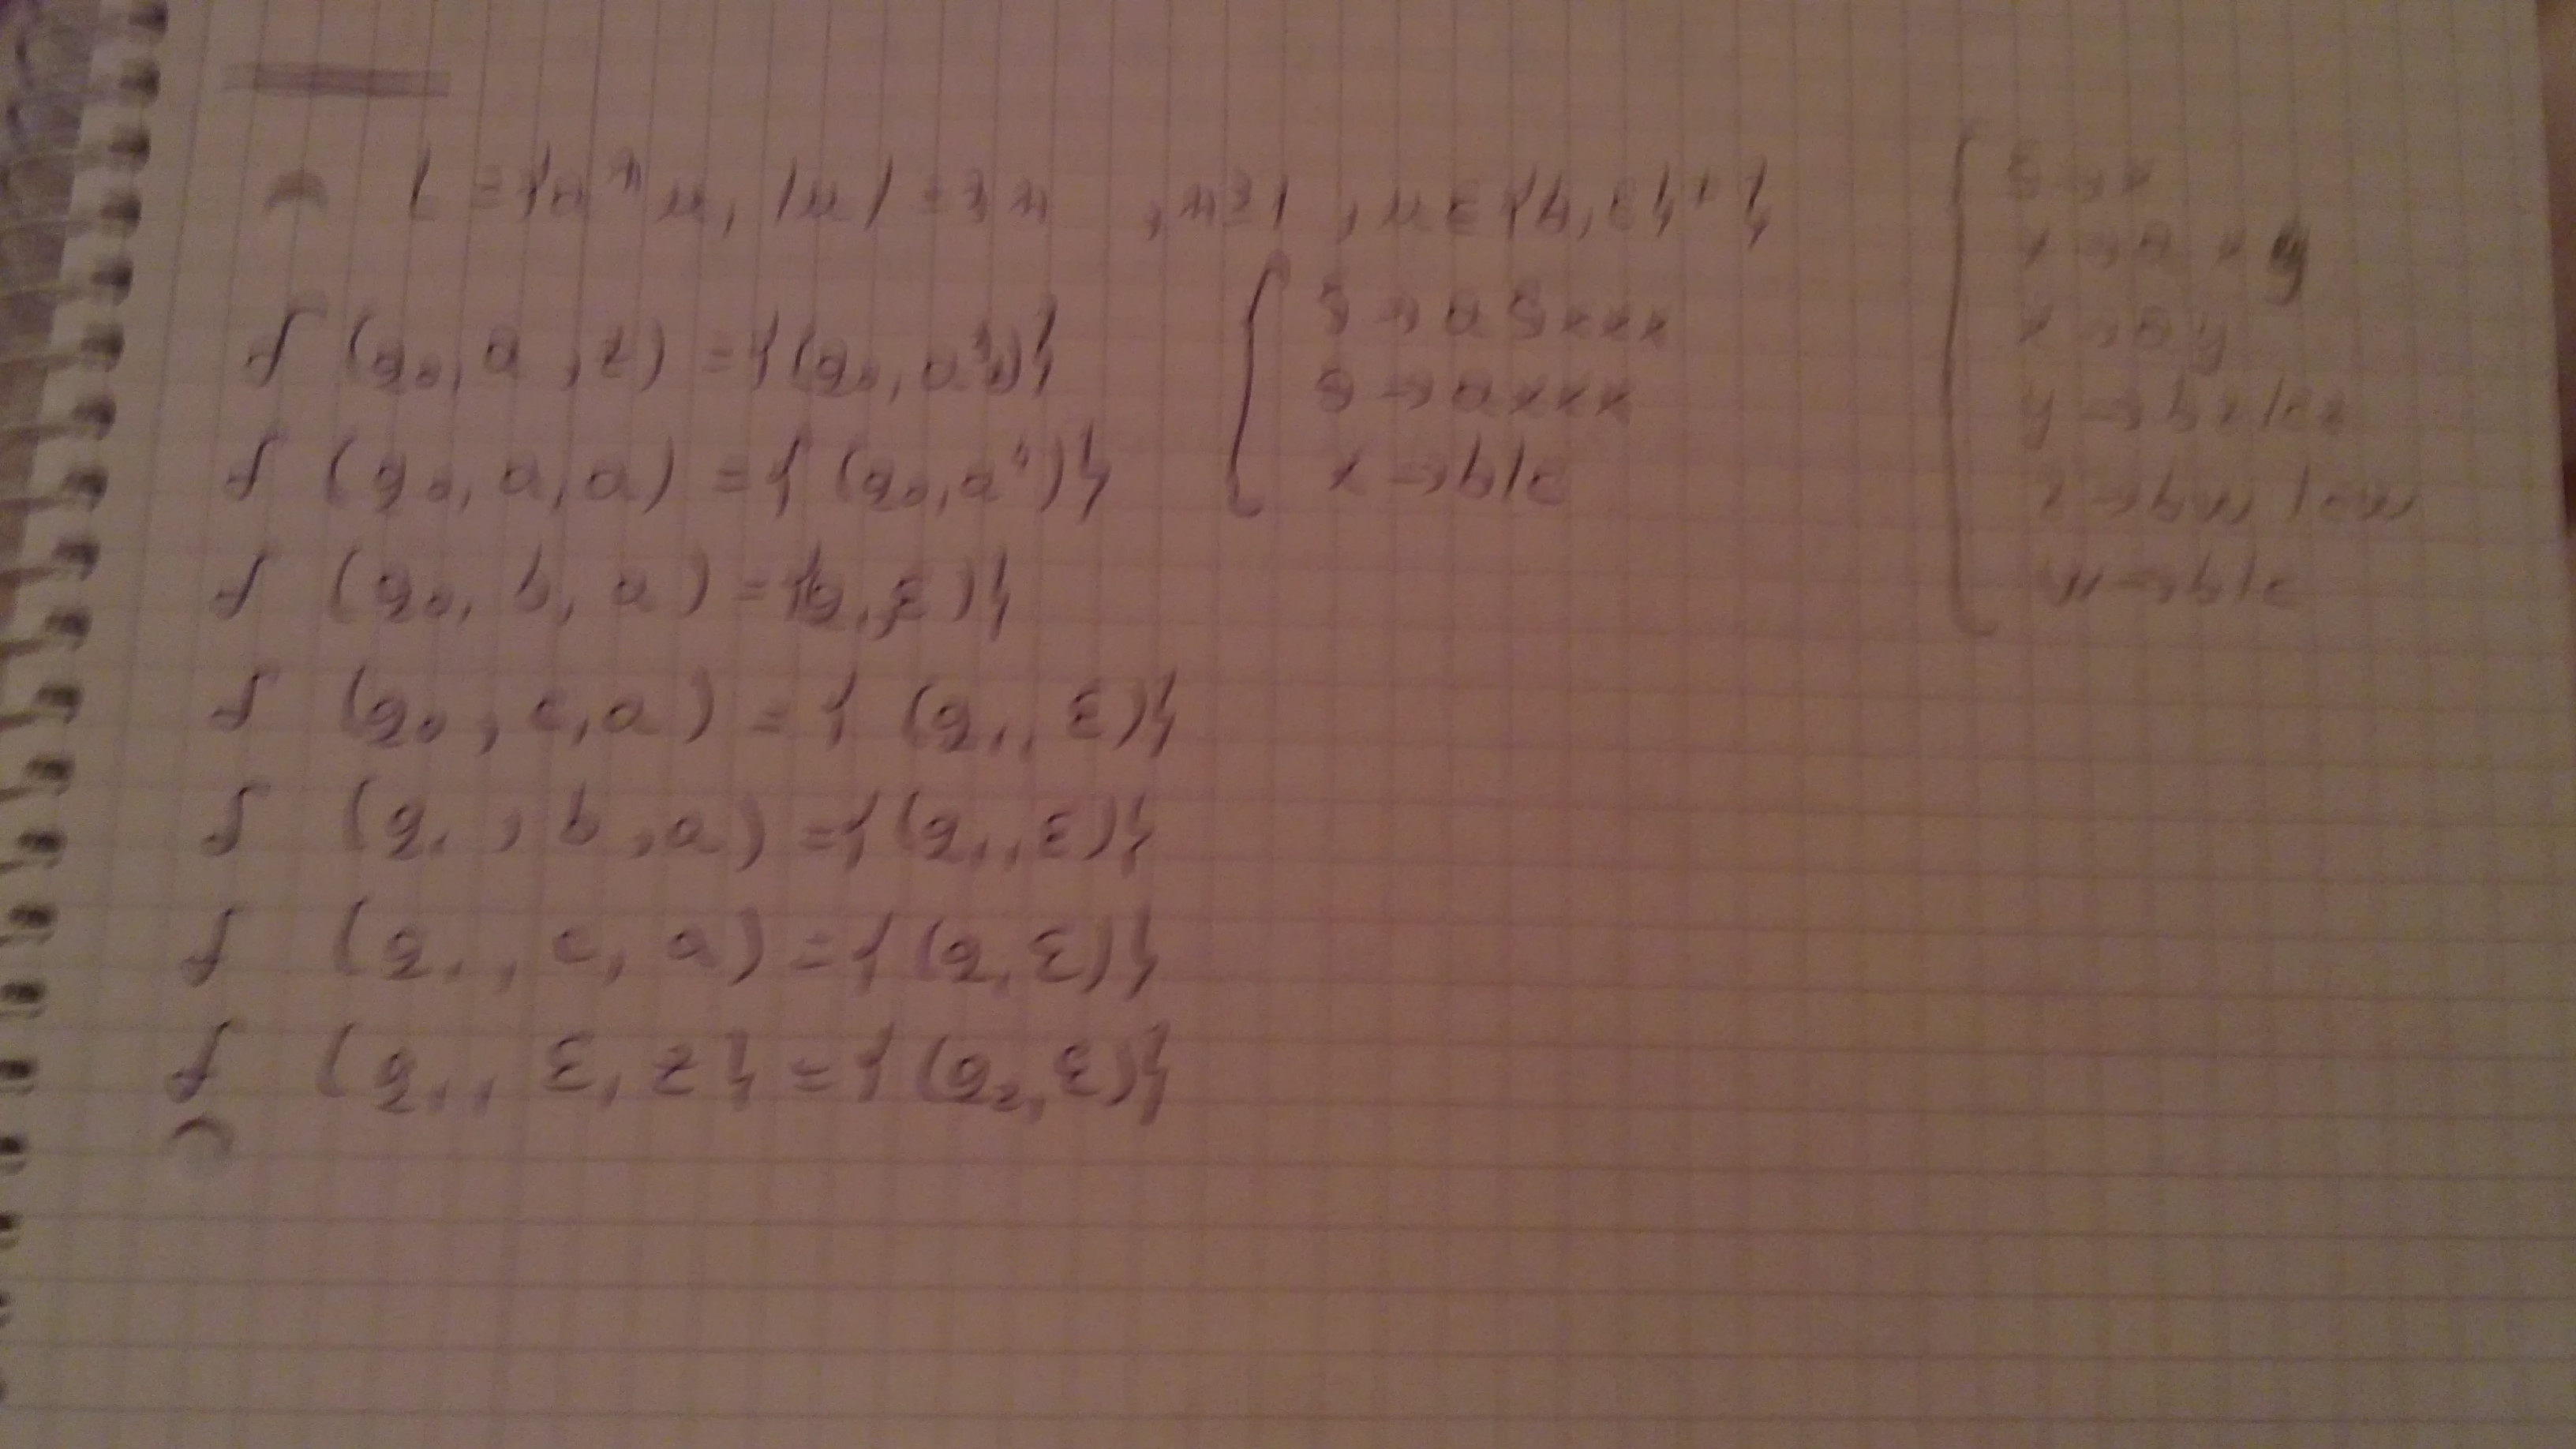 L = {aⁿ u, |u| = 3n , n ≥ 1 , u ∈ {b, c}⁺}
δ (q₀, a, z) = {(q₀, a³z)}
δ (q₀, a, a) = { (q₀, a⁴)}
δ (q₀, b, a) = {(q₁, ε)}
δ (q₀, c, a) = { (q₁, ε)}
δ (q₁, b, a) = {(q₁, ε)}
δ (q₁, c, a) = {(q₁, ε)}
δ (q₁, ε, z} = {(q₂, ε)}
S → a S x x x
S → a x x x
x → b/c
S → x
x → a x y
x → a y
y → b z / c z
z → b w / c w
w → b/c